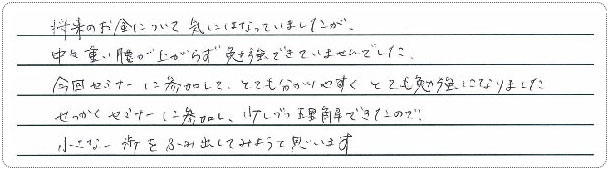 将来のお金について気にはなっていましたが、
中々重い腰が上がらず勉強できていませんでした。
今回セミナーに参加して、とても分かりやすくとても勉強になりました
せっかくセミナーに参加し、少しづつ理解できたので、
小さな一歩をふみ出してみようと思います